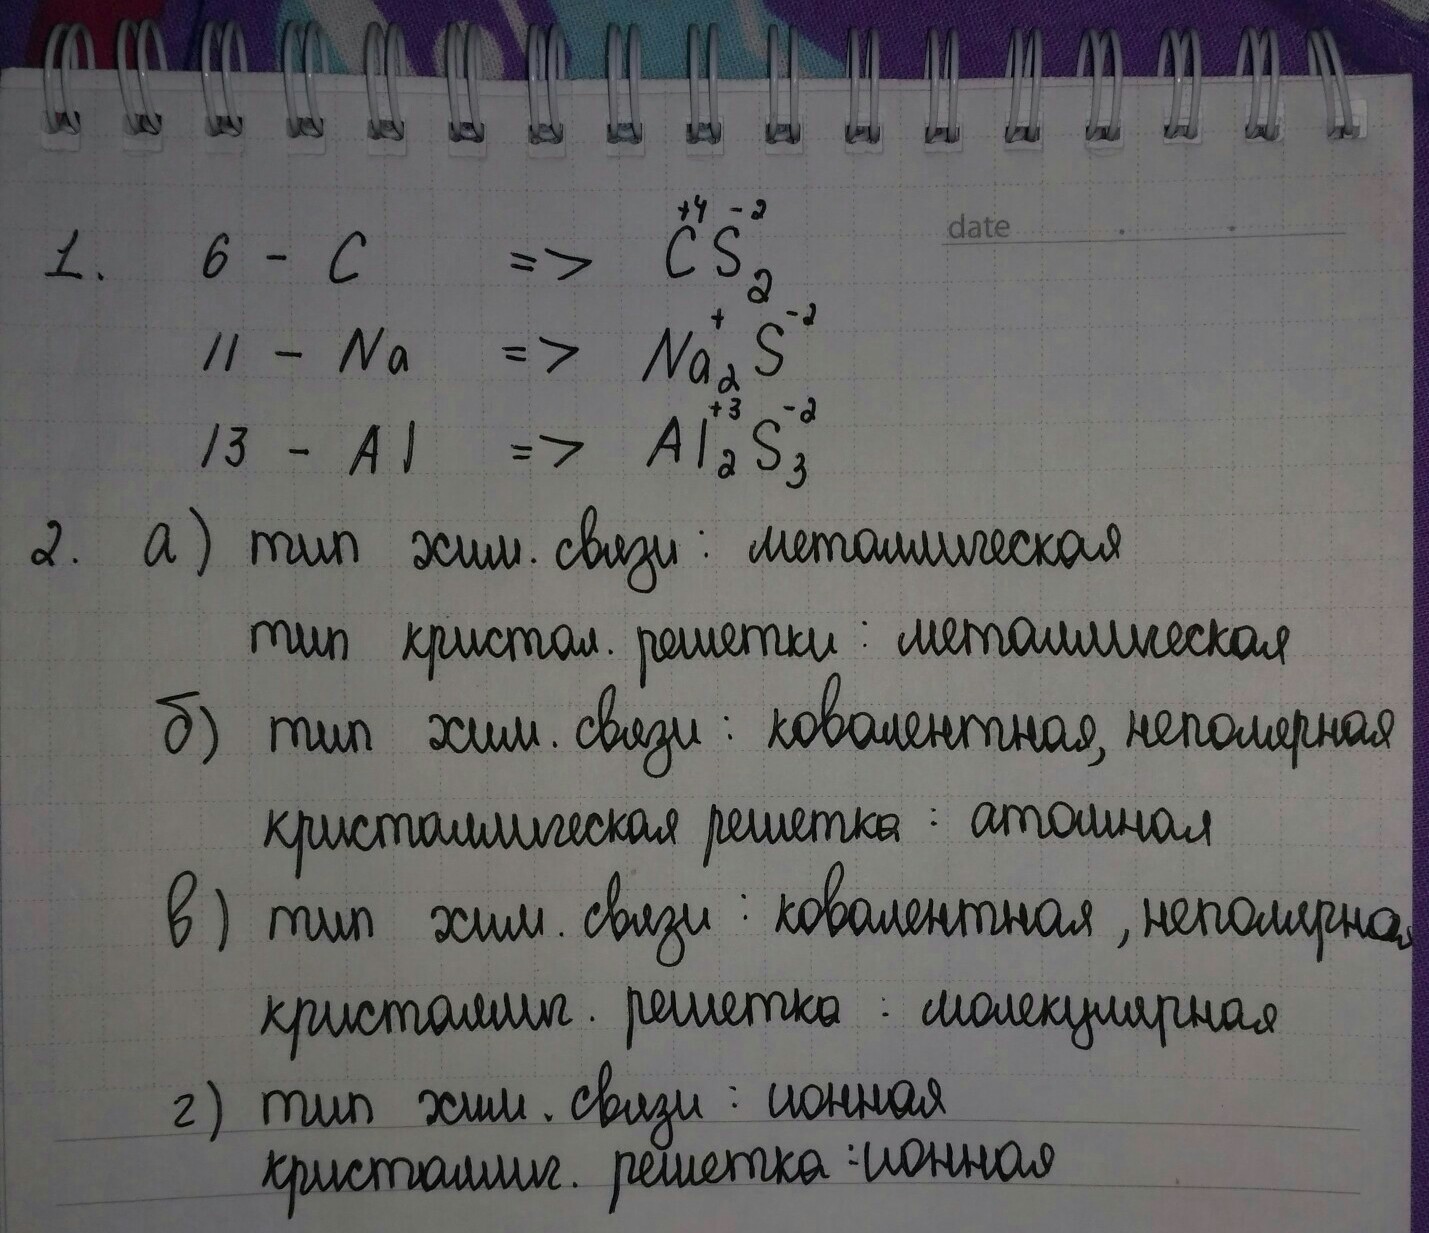 date
1. 6 - C => C⁺⁴S⁻²₂
11 - Na => Na⁺₂S⁻²
13 - Al => Al⁺³₂S⁻²₃
2. а) тип хим. связи : металлическая
тип кристал. решетки : металлическая
б) тип хим. связи : ковалентная, неполярная
кристаллическая решетка : атомная
в) тип хим. связи : ковалентная , неполярная
кристаллич. решетка : молекулярная
г) тип хим. связи : ионная
кристаллич. решетка : ионная